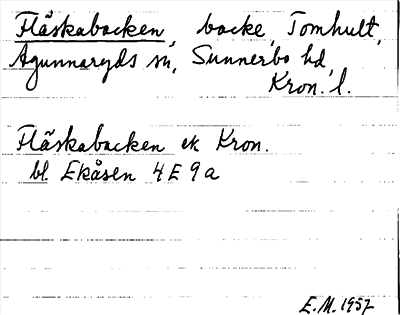 Fläskabacken, backe, Tomhult,
Agunnaryds sn, Sunnerbo hd,
Kron. l.
Fläskabacken ek Kron.
bl Ekåsen 4E9a
E.M. 1957